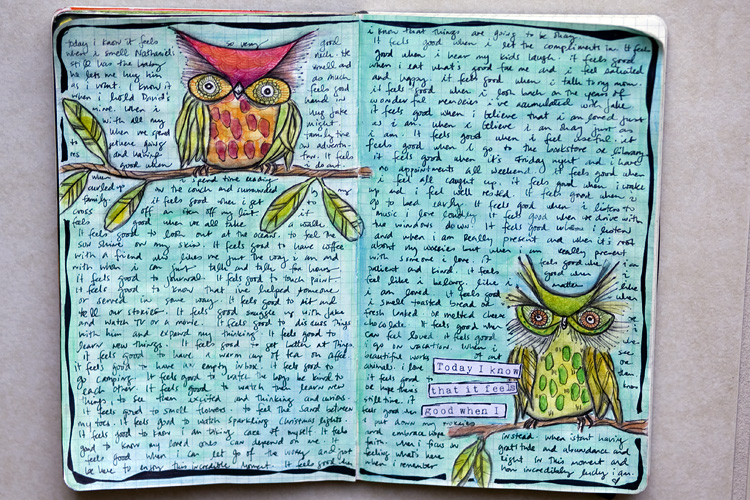 today i know it feels so very good
when i smell Nathaniel. nice. He
still has the baby smell and
he lets me hug him so much
as i want. i know it feels good
when i hold David's hand in
mine. when i hug Jake
with all my might.
when we spend family time
going on adventures
and having it feels
good when i do art.
when i spend time reading
curled up on the couch and surrounded by my
family. it feels good when i get to
cross off an item off my list
good when we all take a walk.
it feels good to look out at the ocean. to feel the
sun shine on my skin. it feels good to have coffee
with a friend who likes me just the way i am and
with whom i can just talk and talk for hours
it feels good to journal. it feels good to touch paint
it feels good to know that i've helped someone
or served in some way. it feels good to sit and
tell our stories. it feels good snuggle up with Jake
and watch TV or a movie. it feels good to discuss things
with him and expand my thinking. it feels good to
learn new things. it feels good to get better at things
it feels good to have a warm cup of tea or coffee.
it feels good to have an empty inbox. it feels good to
go camping. it feels good to watch the boys be kind to
each other. it feels good to watch them learn new
things, to see them excited and thinking and curious.
it feels good to smell flowers. to feel the sand between
my toes. it feels good to watch sparkling christmas lights.
it feels good to know i am taking care of myself. it feels
good to know my loved ones can depend on me. it
feels good when i can let go of the worry and just
be here to enjoy this incredible moment. it feels good when
i know that things are going to be okay.
it feels good when i let the compliments in. it feels
good when i hear my kids laugh. it feels good
when i eat what's good for me and i feel satiated
and happy. it feels good when i talk to my mom.
it feels good when i look back on the years of
wonderful memories i've accumulated with Jake
it feels good when i believe that i am loved just
as i am. when i believe i am okay just as
i am. it feels good when i feel useful. it
feels good when i go to the bookstore or library
it feels good when it's friday night and i have
no appointments all weekend. it feels good when
i feel all caught up. it feels good when i wake
up and i feel well rested. it feels good when i
go to bed early. it feels good when i listen to
music i love loudly. it feels good when we drive with
the windows down. it feels good when i listen
when i am really present and when it's not
about my worries but when i am really present
with someone i love. it feels good when i am
patient and kind. it feels good when i
feel like i belong. like i matter. like
i am loved. it feels good when
i smell toasted bread or
fresh baked or melted cheese
chocolate. it feels good when
can feel loved. it feels good
i go on vacation. when i
beautiful works of art
animals. i love
it feels good to
be hope there's
still time. it
feels good when
i put down my worries
and embrace hope
faith. when i focus on
feeling what's here
when i remember
Today I know
that it feels
good when I
instead. when i start having
gratitude and abundance and
right in this moment and
how incredibly lucky i am.